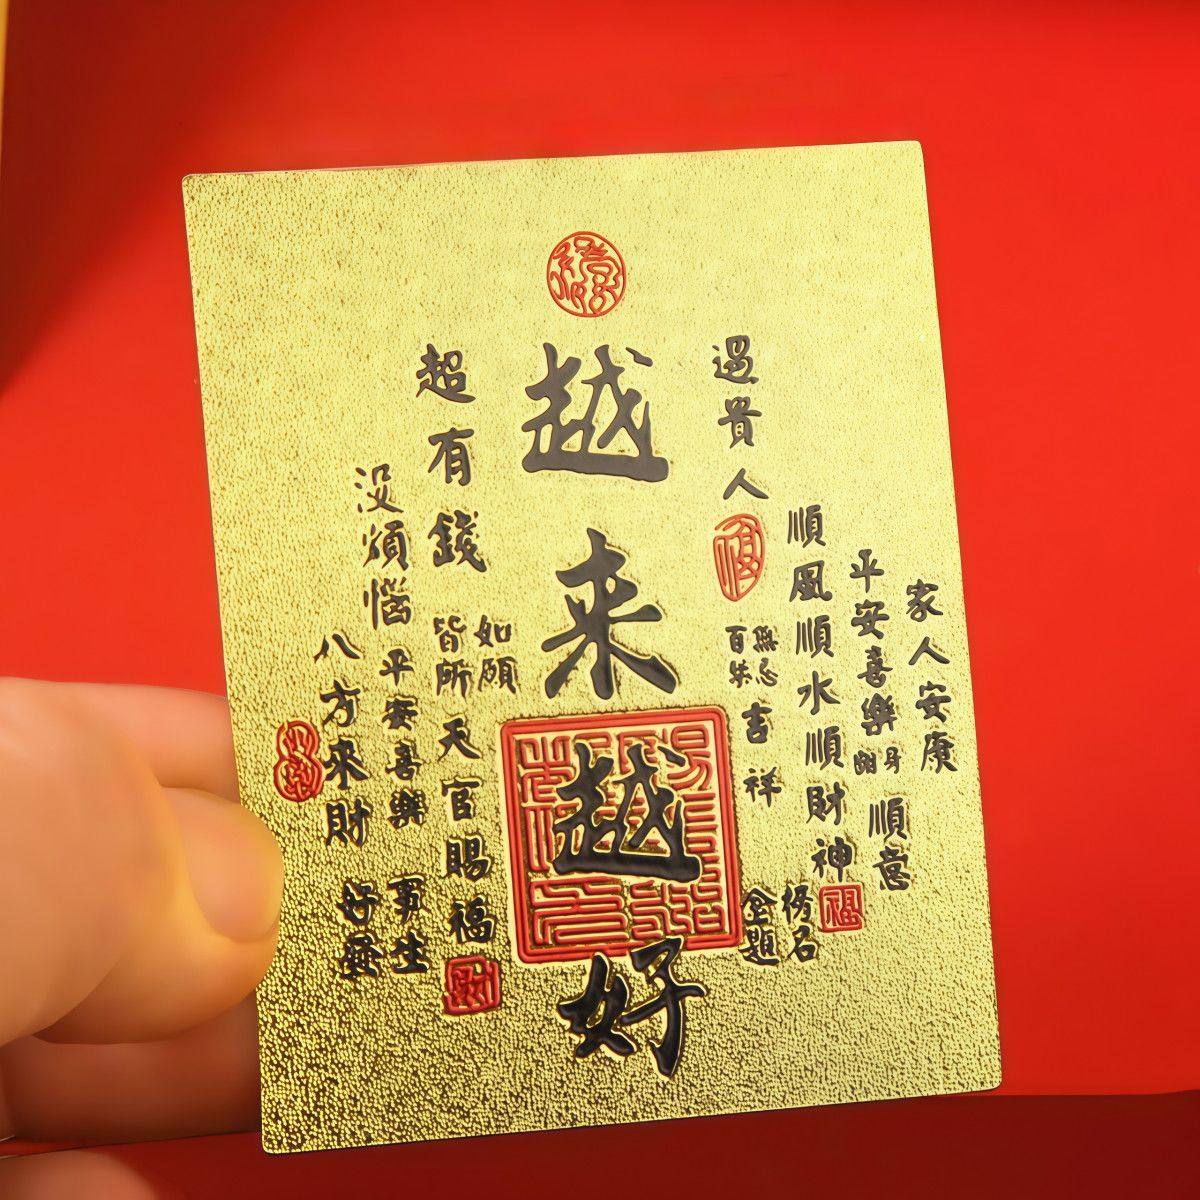 家人安康
平安喜樂
順意
順風順水順財神
榜名
金題
過貴人
福
無忌
百
吉祥
越来越好
超有錢
如願
皆所
天官賜福
財
没煩惱
平安喜樂
事生
好
八方來財
福